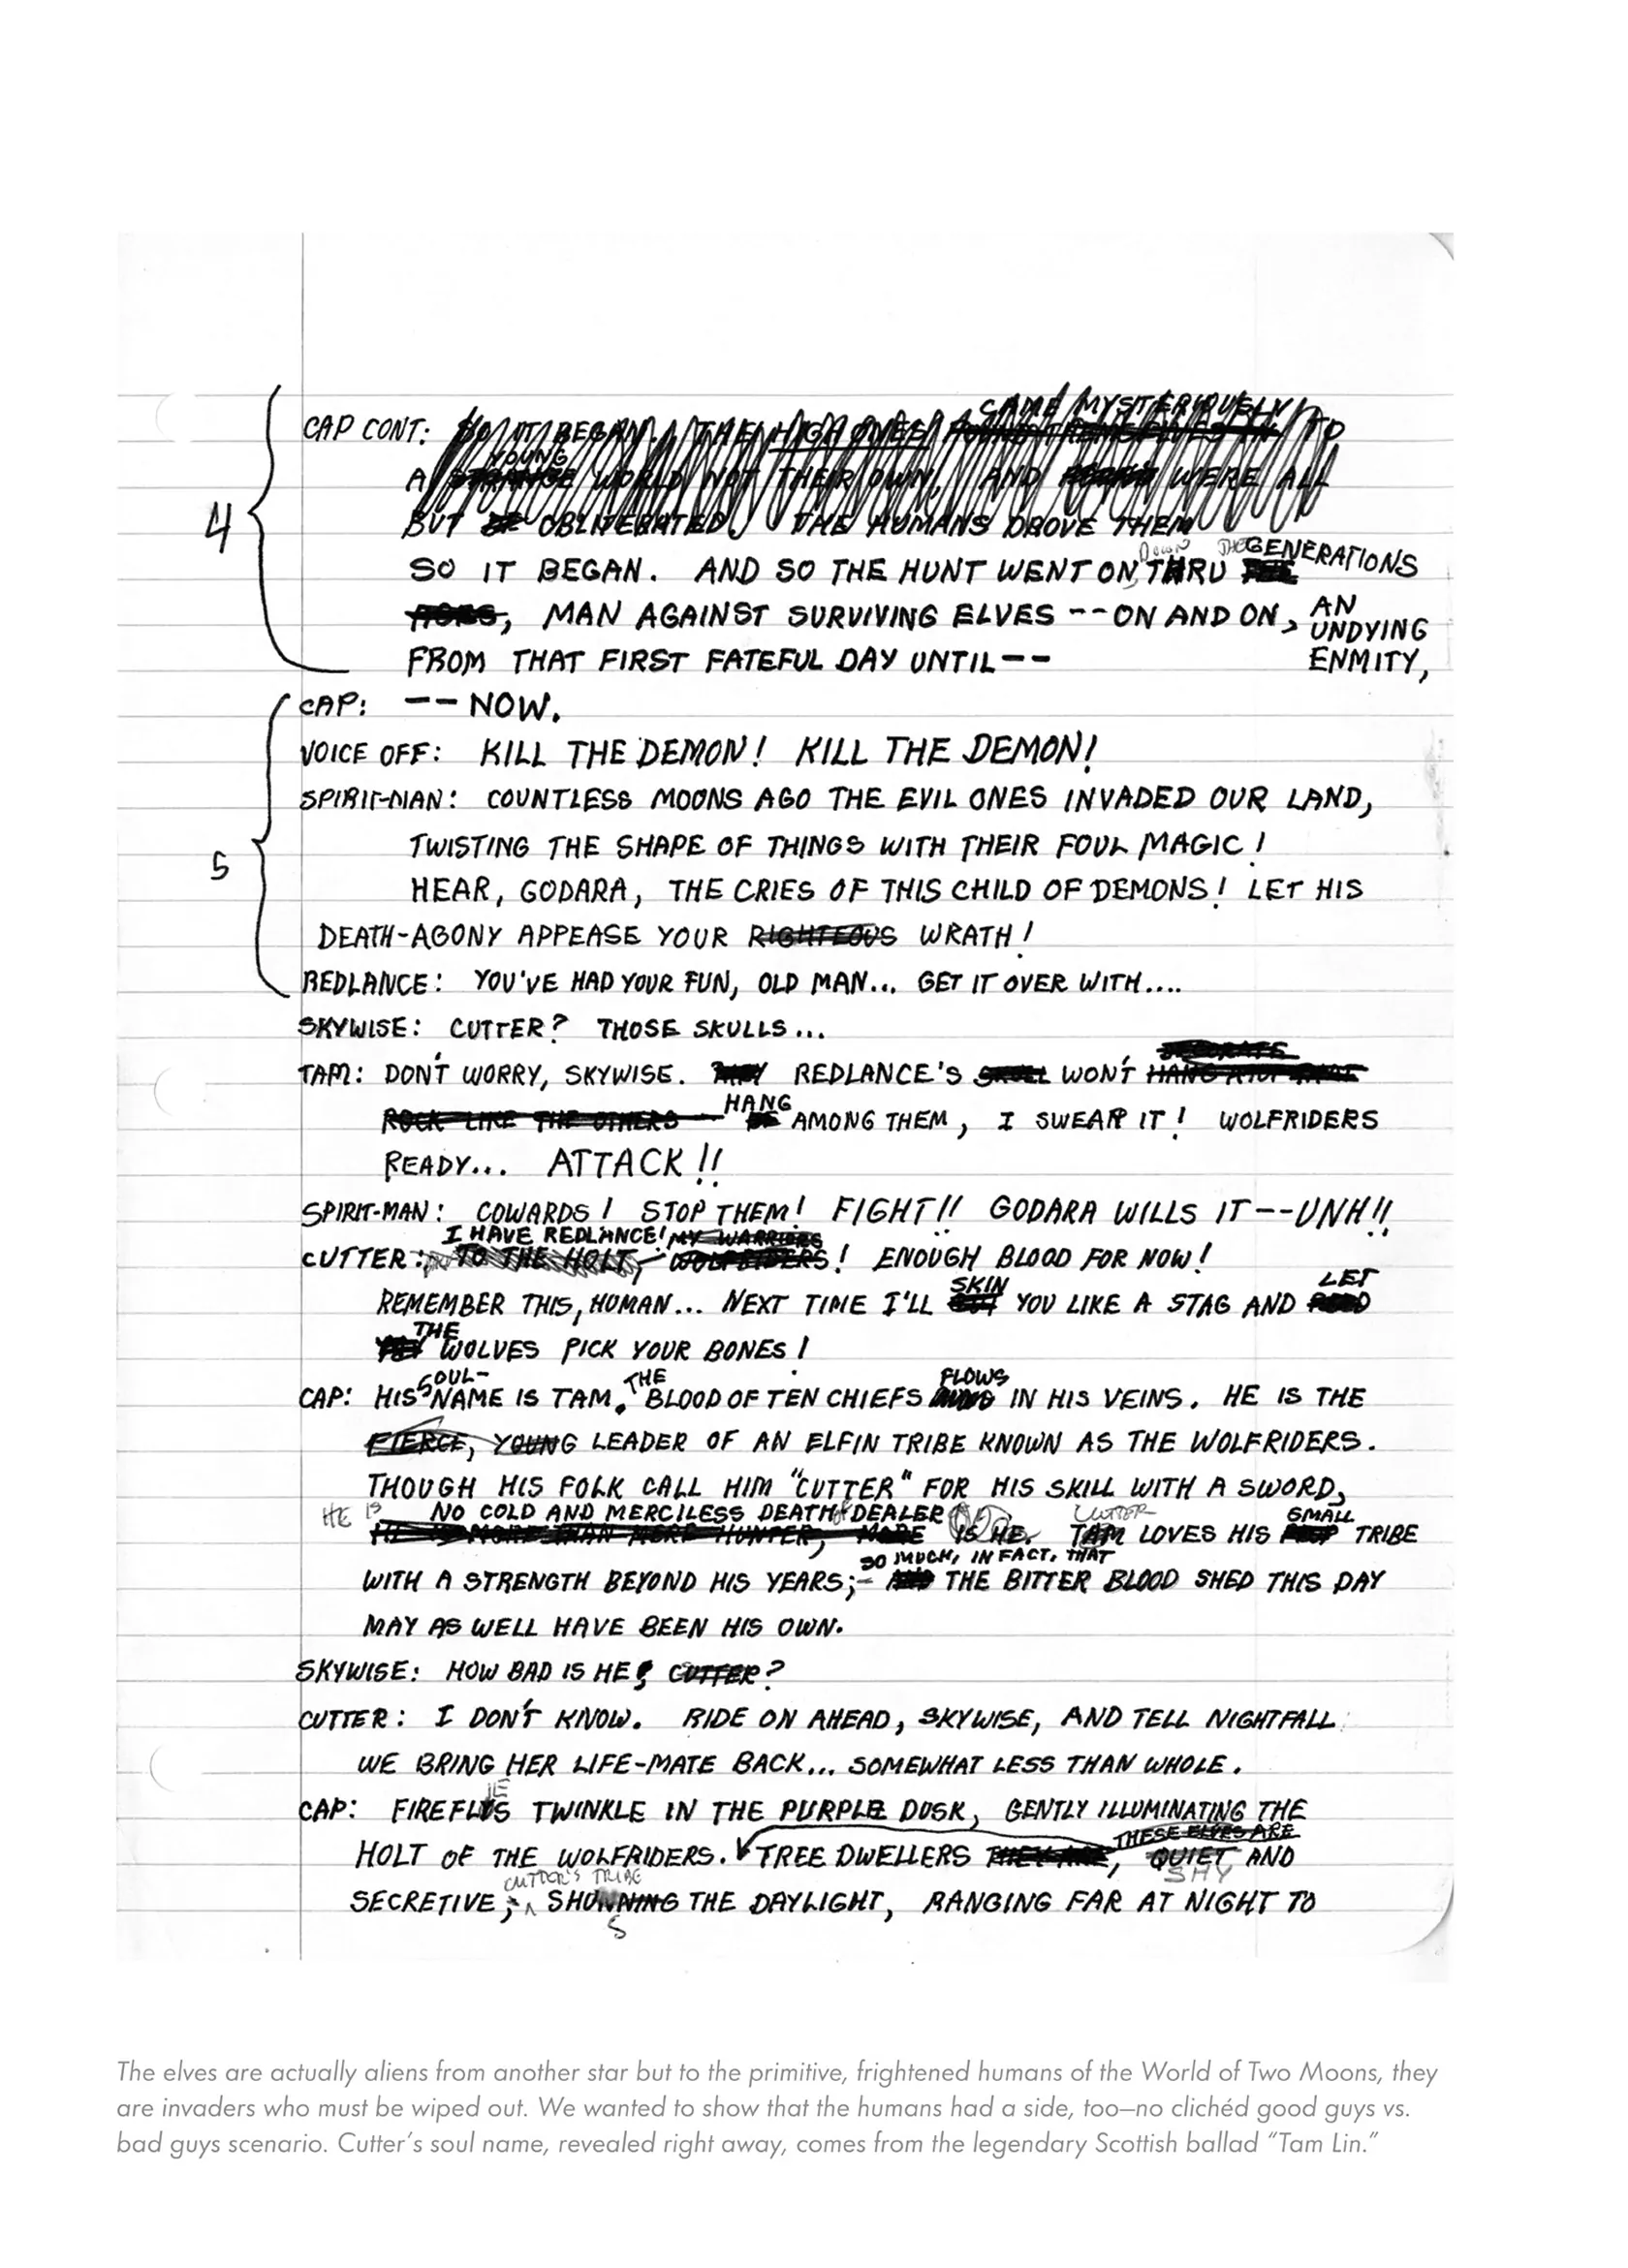 CAME MYSTERIOUSLY
CAP CONT: SO IT BEGAN... THE HIGH ONES TO
YOUNG
A STRANGE WORLD NOT THEIR OWN, AND WERE ALL
BUT OBLITERATED. THE HUMANS DROVE THEM
DOWN THE GENERATIONS
4
SO IT BEGAN. AND SO THE HUNT WENT ON, THRU THE
AGES, MAN AGAINST SURVIVING ELVES -- ON AND ON, AN UNDYING ENMITY,
FROM THAT FIRST FATEFUL DAY UNTIL --
CAP: -- NOW.
VOICE OFF: KILL THE DEMON! KILL THE DEMON!
SPIRIT-MAN: COUNTLESS MOONS AGO THE EVIL ONES INVADED OUR LAND,
TWISTING THE SHAPE OF THINGS WITH THEIR FOUL MAGIC!
5
HEAR, GODARA, THE CRIES OF THIS CHILD OF DEMONS! LET HIS
DEATH-AGONY APPEASE YOUR RIGHTEOUS WRATH!
REDLANCE: YOU'VE HAD YOUR FUN, OLD MAN... GET IT OVER WITH....
SKYWISE: CUTTER? THOSE SKULLS...
DECORATE
TAM: DON'T WORRY, SKYWISE. REDLANCE'S SKULL WON'T HANG ATOP THAT
HANG
ROCK LIKE THE OTHERS -- BE AMONG THEM, I SWEAR IT! WOLFRIDERS
READY... ATTACK!!
SPIRIT-MAN: COWARDS! STOP THEM! FIGHT!! GODARA WILLS IT -- UNH!!
I HAVE REDLANCE! MY WARRIORS
CUTTER: TO THE HOLT, WOLFRIDERS! ENOUGH BLOOD FOR NOW!
SKIN LET
REMEMBER THIS, HUMAN... NEXT TIME I'LL GUT YOU LIKE A STAG AND FEED
THE
WOLVES PICK YOUR BONES!
SOUL- THE FLOWS
CAP: HIS NAME IS TAM. BLOOD OF TEN CHIEFS RUNS IN HIS VEINS. HE IS THE
FIERCE, YOUNG LEADER OF AN ELFIN TRIBE KNOWN AS THE WOLFRIDERS.
THOUGH HIS FOLK CALL HIM "CUTTER" FOR HIS SKILL WITH A SWORD,
HE IS NO COLD AND MERCILESS DEATH DEALER CUTTER SMALL
HE IS MORE THAN MERE HUNTER, MORE IS HE. TAM LOVES HIS TRIBE
SO MUCH, IN FACT, THAT
WITH A STRENGTH BEYOND HIS YEARS; -- AND THE BITTER BLOOD SHED THIS DAY
MAY AS WELL HAVE BEEN HIS OWN.
SKYWISE: HOW BAD IS HE, CUTTER?
CUTTER: I DON'T KNOW. RIDE ON AHEAD, SKYWISE, AND TELL NIGHTFALL
WE BRING HER LIFE-MATE BACK... SOMEWHAT LESS THAN WHOLE.
IE
CAP: FIREFLYS TWINKLE IN THE PURPLE DUSK, GENTLY ILLUMINATING THE
THESE ELVES ARE
HOLT OF THE WOLFRIDERS. TREE DWELLERS THEY ARE, QUIET AND
CUTTER'S TRIBE SHY
SECRETIVE; SHUNNING THE DAYLIGHT, RANGING FAR AT NIGHT TO
S
The elves are actually aliens from another star but to the primitive, frightened humans of the World of Two Moons, they
are invaders who must be wiped out. We wanted to show that the humans had a side, too—no clichéd good guys vs.
bad guys scenario. Cutter's soul name, revealed right away, comes from the legendary Scottish ballad "Tam Lin."